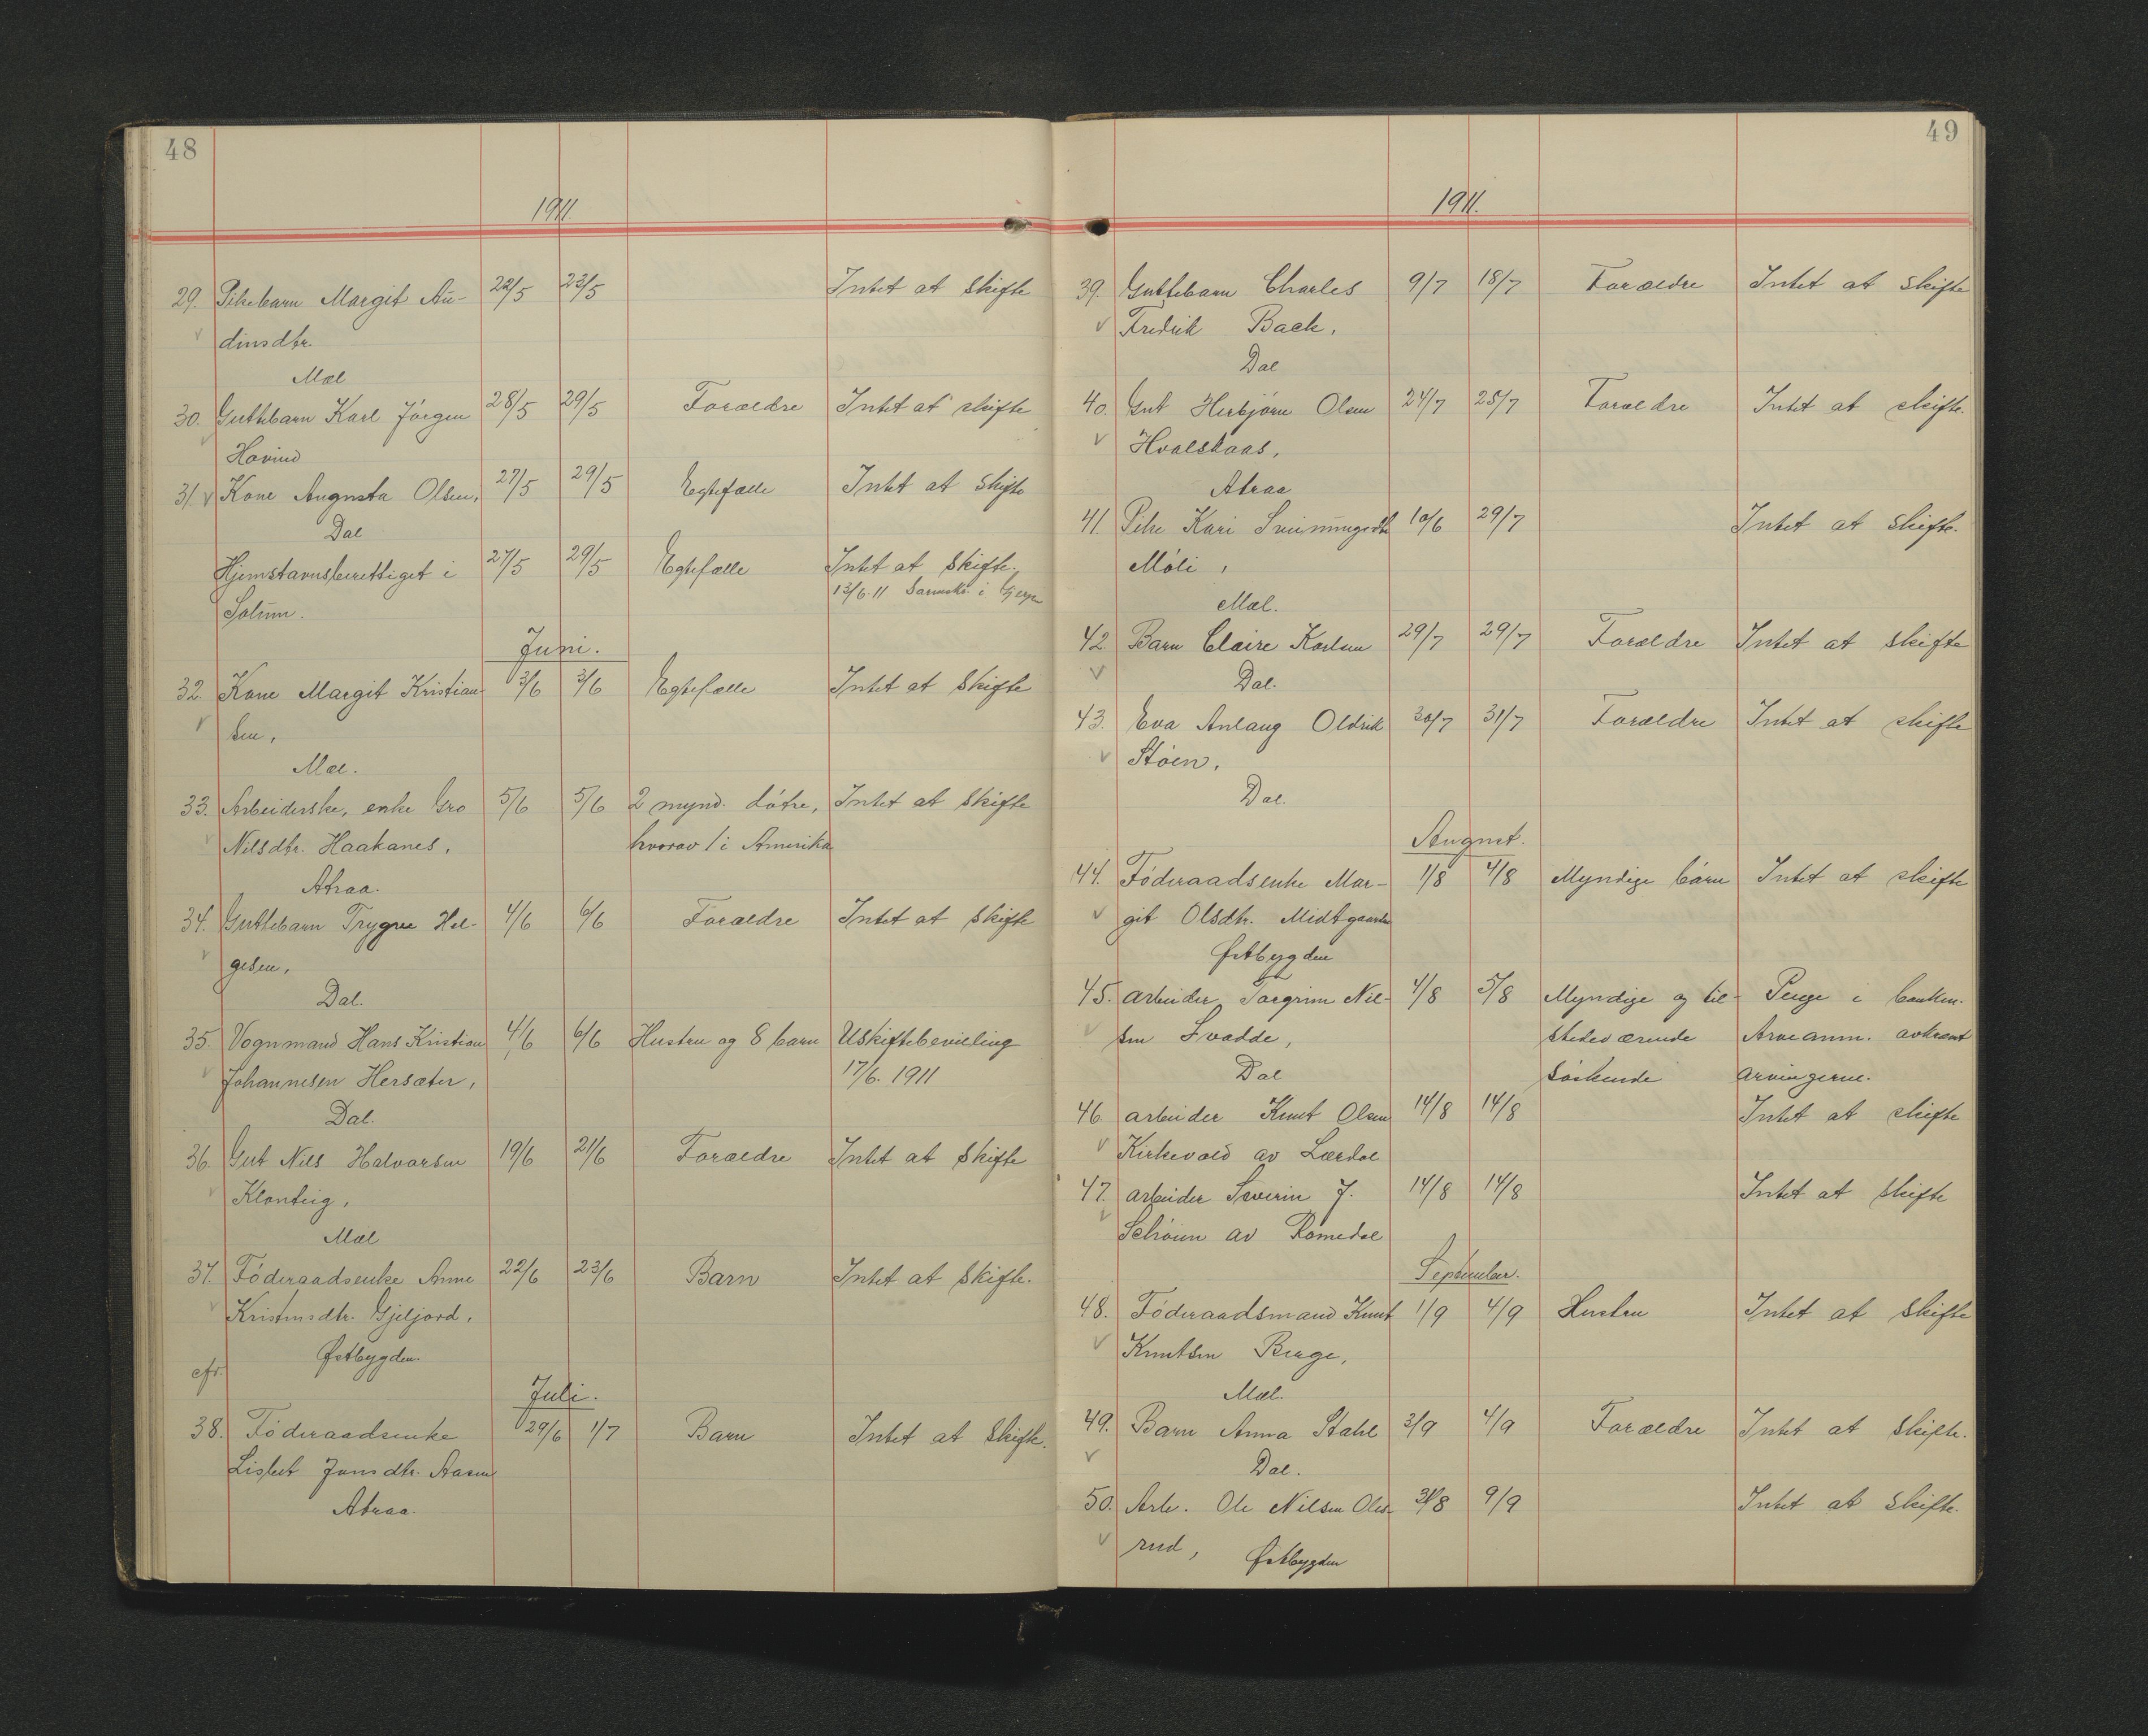 48
1911
29. Pikebarn Margit Au- 22/5 23/5 Intet at skifte
dinsdtr.
Mæl
30. Guttebarn Karl Jörgen 28/5 29/5 Forældre Intet at skifte
Hovind
31. Kone Augusta Olsen, 27/5 29/5 Egtefælle Intet at skifte
Dal
Hjemstavnsberettiget i 27/5 29/5 Egtefælle Intet at skifte.
Solum. 13/6 11 i Gjerpen
Juni.
32. Kone Margit Kristian- 3/6 3/6 Egtefælle Intet at skifte
sen,
Mæl.
33. Arbeiderske, enke Gro 5/6 5/6 2 mynd. døtre, Intet at skifte
Nilsdtr. Haakanes, hvorav 1 i Amerika
Atraa.
34. Guttebarn Trygve Hel- 4/6 6/6 Forældre Intet at skifte
gesen,
Dal.
35. Vognmand Hans Kristian 4/6 6/6 Hustru og 8 barn Uskiftebevilling
Johannesen Hersæter, 17/6. 1911
Dal.
36. Gut Nils Halvorsen 19/6 21/6 Forældre Intet at skifte
Klonteig,
Mæl
37. Föderaadsenke Anne 22/6 23/6 Barn Intet at skifte.
Kristensdtr. Gjeljord,
Østbygden.
cfr.
Juli.
38. Föderaadsenke 29/6 1/7 Barn Intet at skifte.
Lisbet Jonsdtr.
Atraa.
49
1911.
39. Guttebarn Charles 9/7 18/7 Forældre Intet at skifte
Fredrik Back,
Dal
40. Gut Herbjörn Olsen 24/7 25/7 Forældre Intet at skifte.
Hvalskaas,
Atraa
41. Pike Kari Sveinungsdtr 10/6 29/7 Intet at skifte.
Möli,
Mæl.
42. Barn Claire Karlsen 29/7 29/7 Forældre Intet at skifte
Dal.
43. Eva Anlaug Oldrik 30/7 31/7 Forældre Intet at skifte
Stöen,
Dal.
August.
44. Föderaadsenke Mar- 1/8 4/8 Myndige börn Intet at skifte
git Olsdtr. Midtgaarden
Østbygden
45. arbeider Torgrim Nil- 4/8 5/8 Myndige og til- Penge i banken.
sen Svadde, stedeværende Arveanm. avkrævt
Dal söskende arvingerne.
46. arbeider Knut Olsen 14/8 14/8 Intet at skifte
Kirkevold av Lærdal
47. arbeider Severin J. 14/8 14/8 Intet at skifte
Schöien av Romedal
September.
48. Föderaadsmand Knut 1/9 4/9 Hustru Intet at skifte
Knutsen Berge,
Mæl.
49. Barn Anna Stahl 3/9 4/9 Forældre Intet at skifte.
Dal.
50. Arb. Ole Nilsen Oles- 31/8 9/9 Intet at skifte.
rud, Østbygden